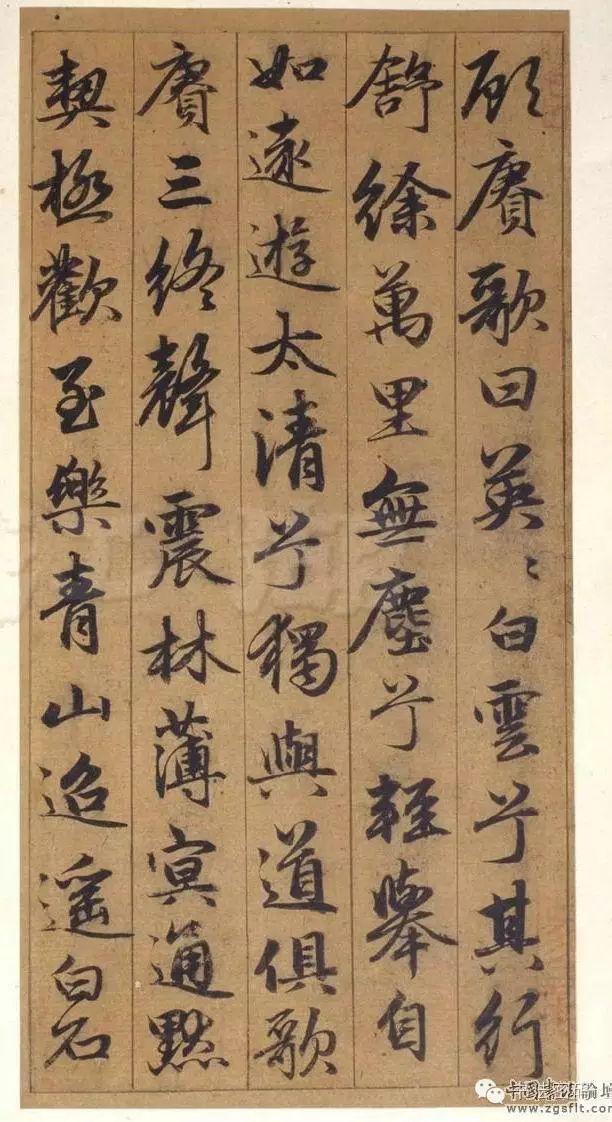 而賡歌曰英〻白雲兮其行
舒徐萬里無塵兮輕舉自
如遠遊太清兮獨與道俱歌
賡三終聲震林薄冥通默
契極歡至樂青山迢遥白石
www.zgsflt.com